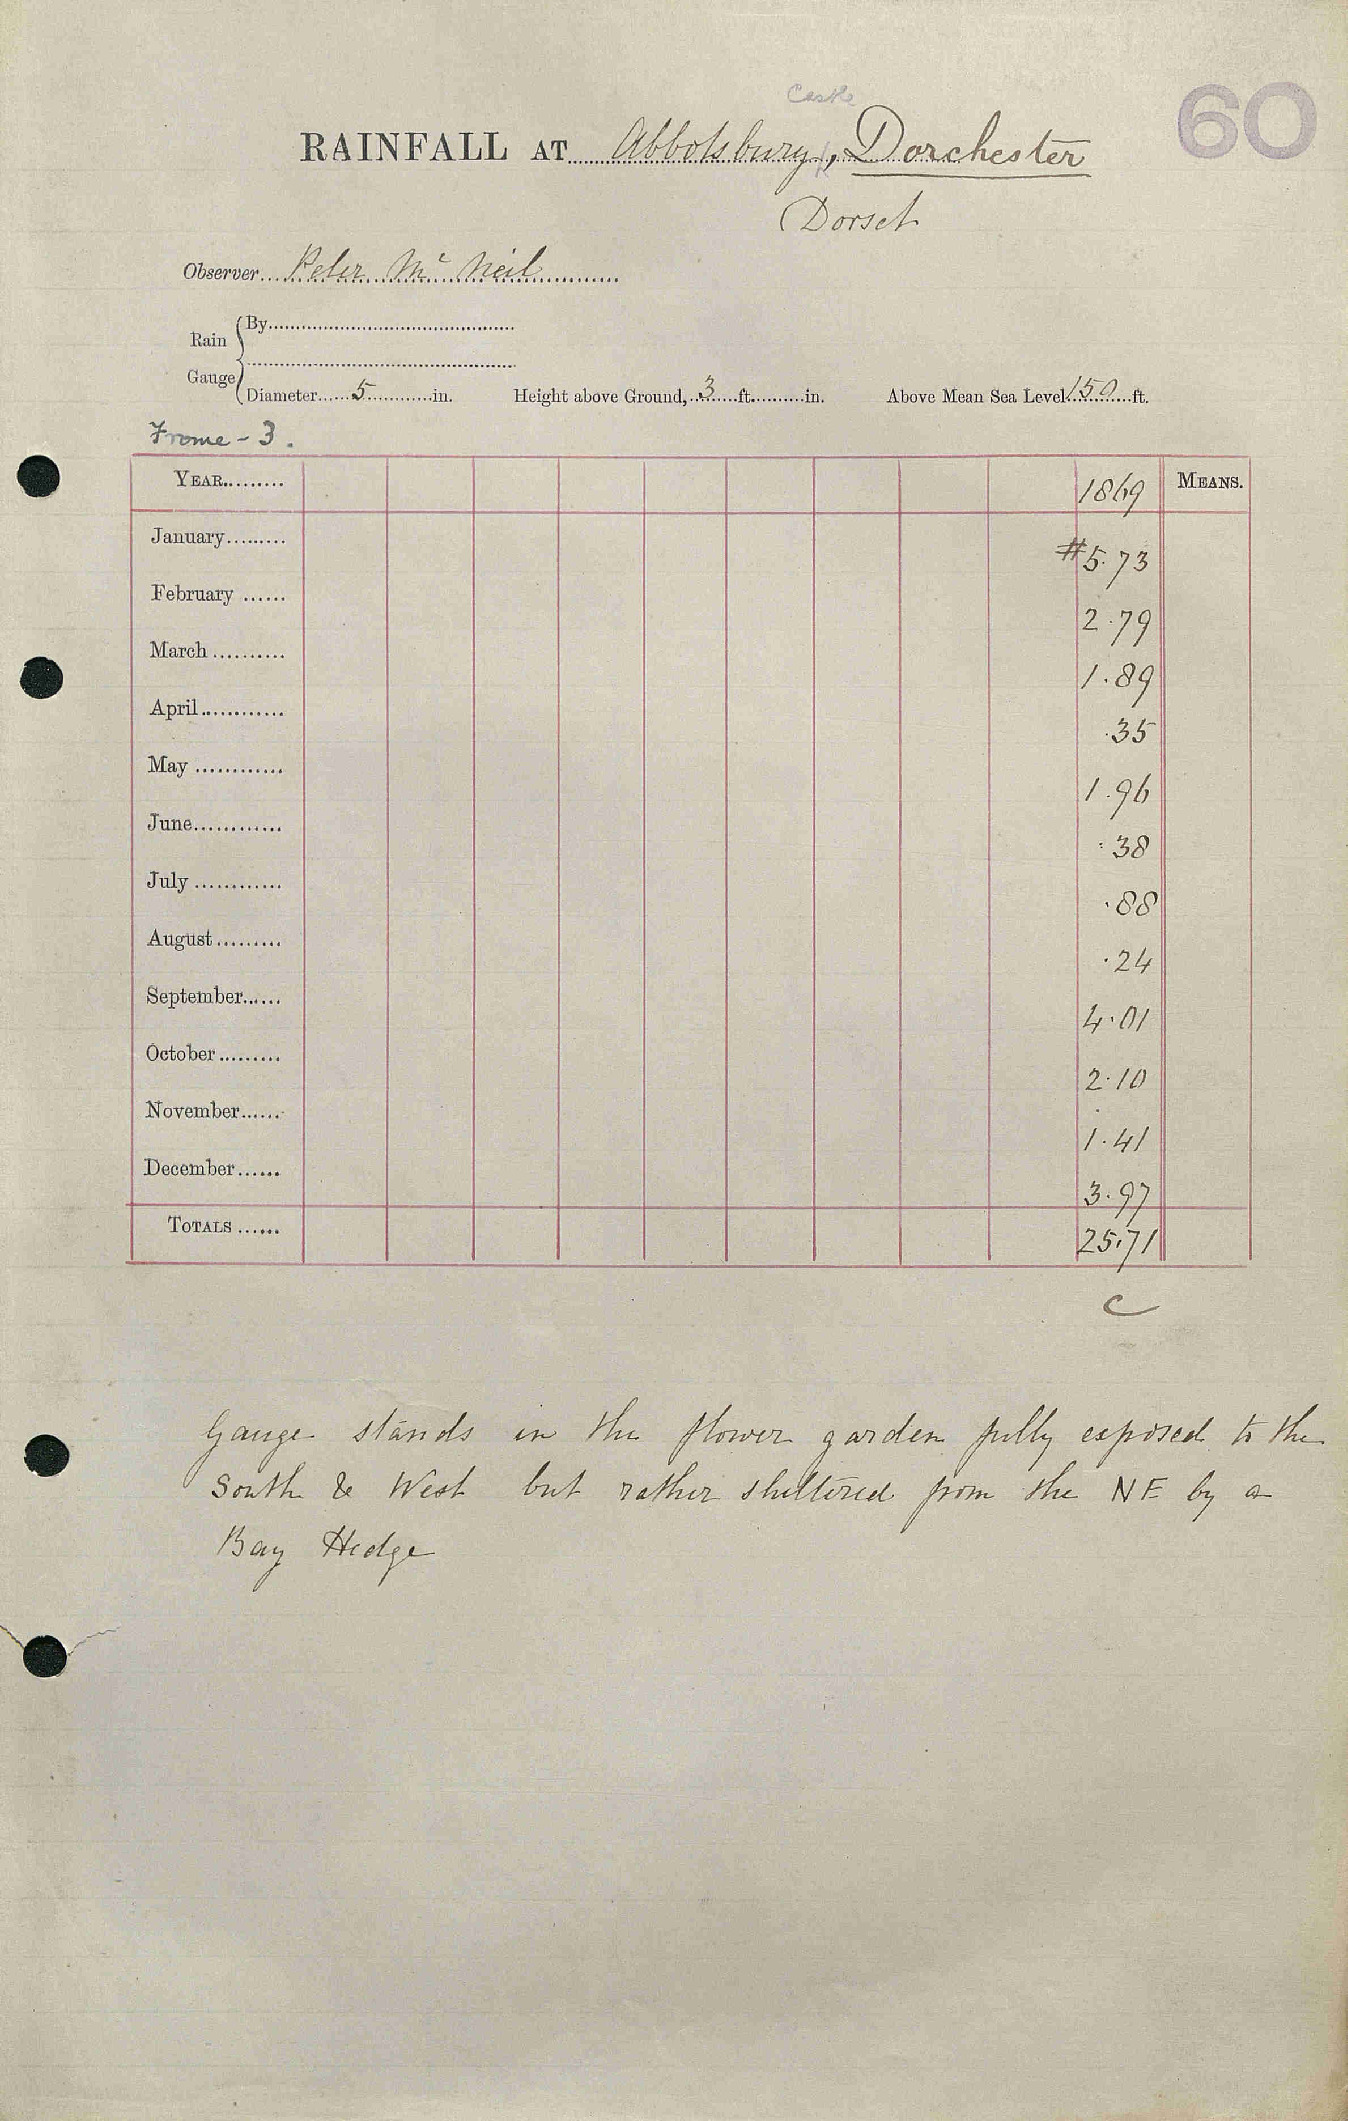 60
Castle
RAINFALL AT Abbotsbury, Dorchester
Dorset
Observer Peter Mc Neil
Rain Gauge
By
Diameter 5 in. Height above Ground, 3 ft. in. Above Mean Sea Level 150 ft.
Frome - 3.
YEAR 1869 MEANS.
January #5.73
February 2.79
March 1.89
April .35
May 1.96
June .38
July .88
August .24
September 4.01
October 2.10
November 1.41
December 3.97
TOTALS 25.71
C
Gauge stands in the flower garden fully exposed to the
South & West but rather sheltered from the NE by a
Bay Hedge